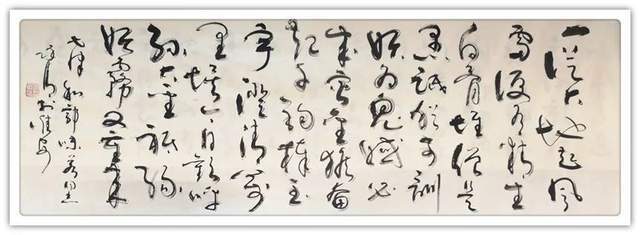 一從大地起風
雷便有精生
白骨堆僧是
愚氓猶可訓
妖為鬼蜮必
成災金猴奮
起千鈞棒玉
宇澄清萬
里埃今日歡呼
孫大聖祇緣
妖霧又重來
七律和郭沫若同志